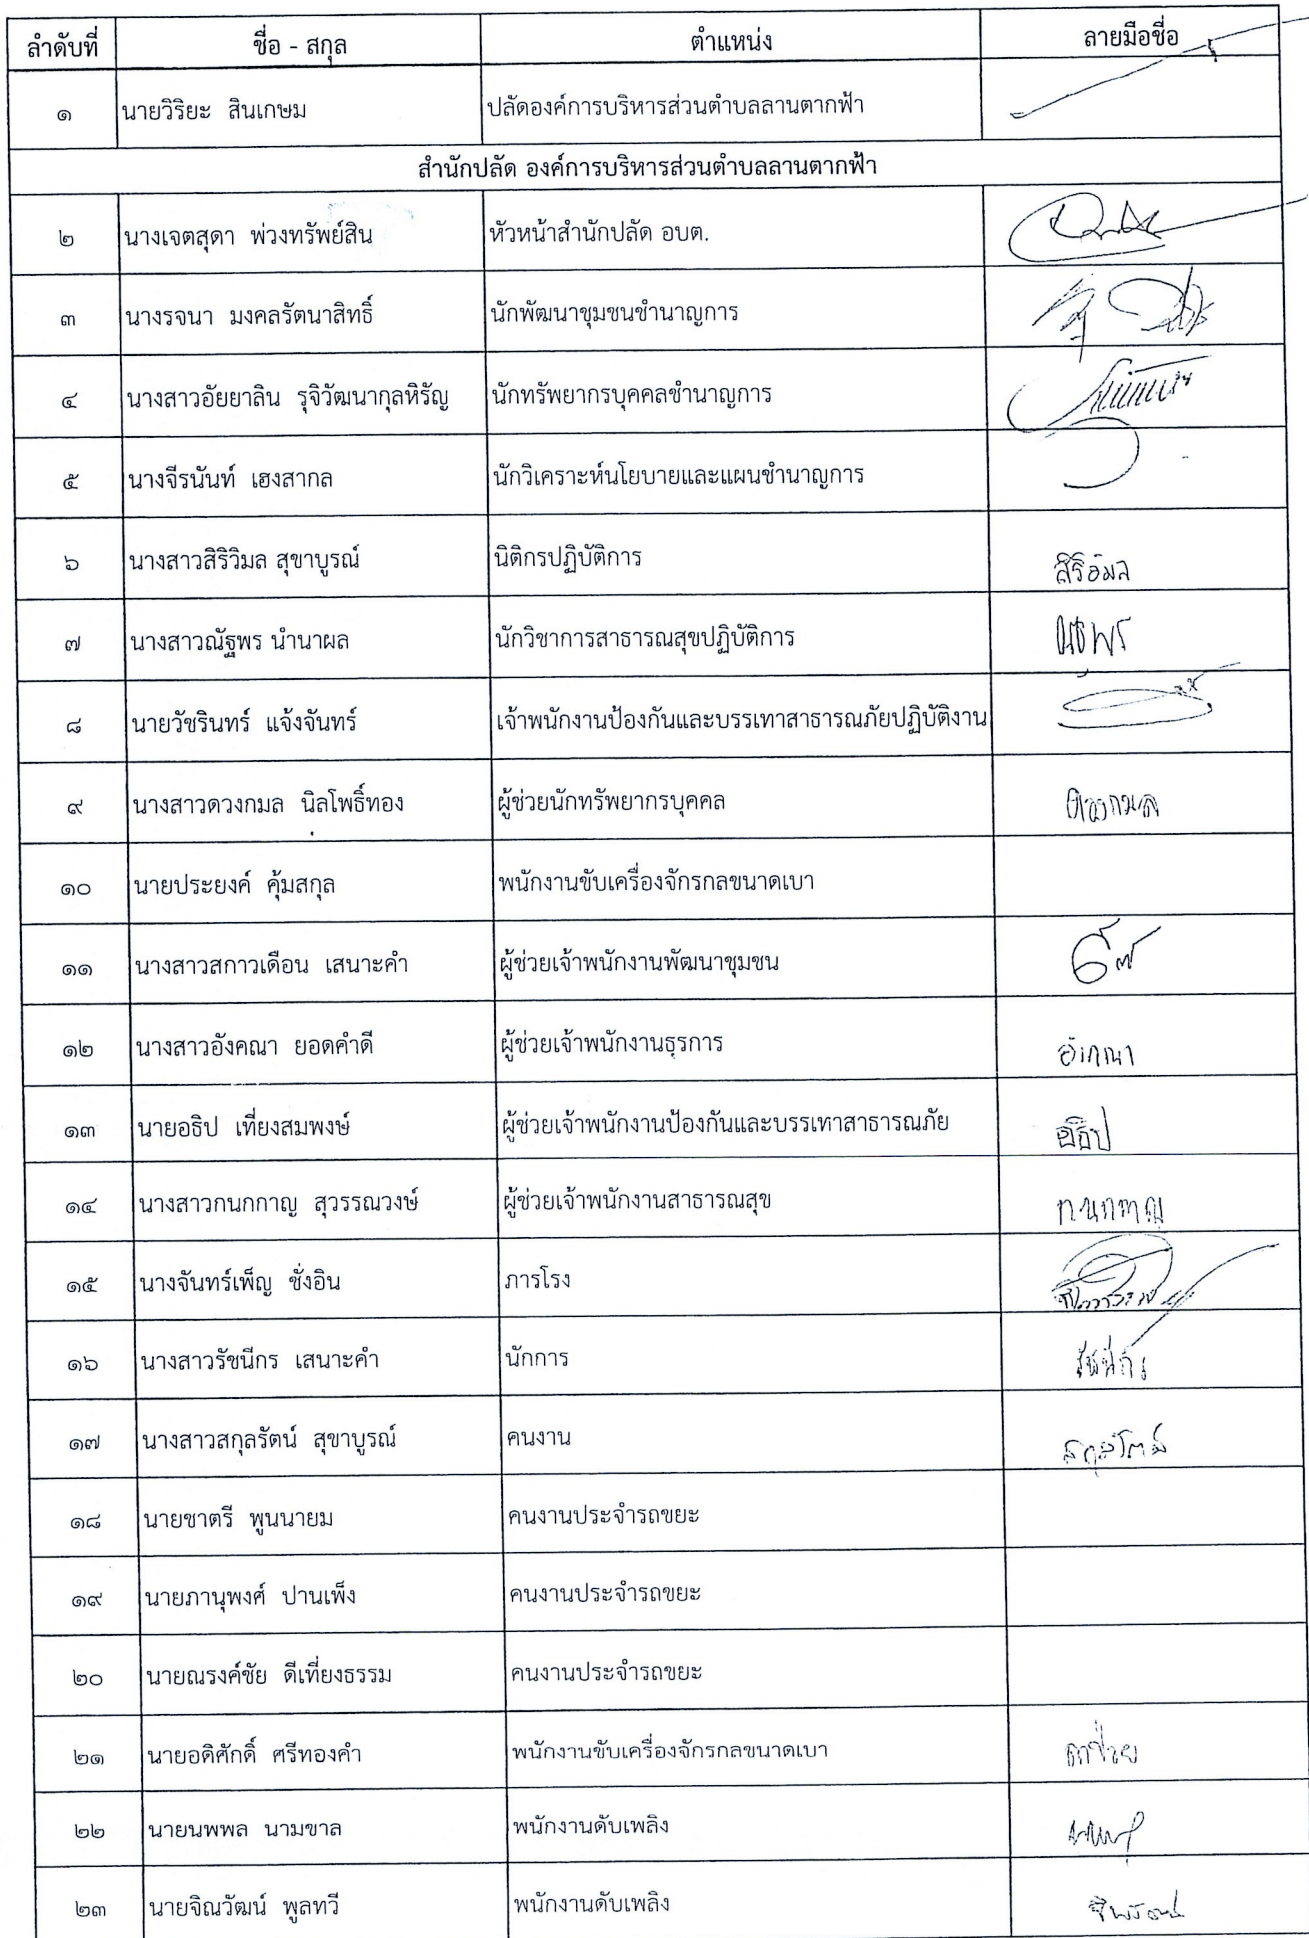 ลำดับที่ ชื่อ - สกุล ตำแหน่ง ลายมือชื่อ
๑ นายวิริยะ สินเกษม ปลัดองค์การบริหารส่วนตำบลลานตากฟ้า
สำนักปลัด องค์การบริหารส่วนตำบลลานตากฟ้า
๒ นางเจตสุดา พ่วงทรัพย์สิน หัวหน้าสำนักปลัด อบต.
๓ นางรจนา มงคลรัตนาสิทธิ์ นักพัฒนาชุมชนชำนาญการ
๔ นางสาวอัยยาลิน รุจิวัฒนากุลหิรัญ นักทรัพยากรบุคคลชำนาญการ
๕ นางจีรนันท์ เฮงสากล นักวิเคราะห์นโยบายและแผนชำนาญการ
๖ นางสาวสิริวิมล สุขาบูรณ์ นิติกรปฏิบัติการ สิริวิมล
๗ นางสาวณัฐพร นำนาผล นักวิชาการสาธารณสุขปฏิบัติการ ณัฐพร
๘ นายวัชรินทร์ แจ้งจันทร์ เจ้าพนักงานป้องกันและบรรเทาสาธารณภัยปฏิบัติงาน
๙ นางสาวดวงกมล นิลโพธิ์ทอง ผู้ช่วยนักทรัพยากรบุคคล ดวงกมล
๑๐ นายประยงค์ คุ้มสกุล พนักงานขับเครื่องจักรกลขนาดเบา
๑๑ นางสาวสกาวเดือน เสนาะคำ ผู้ช่วยเจ้าพนักงานพัฒนาชุมชน
๑๒ นางสาวอังคณา ยอดคำดี ผู้ช่วยเจ้าพนักงานธุรการ อังคณา
๑๓ นายอธิป เที่ยงสมพงษ์ ผู้ช่วยเจ้าพนักงานป้องกันและบรรเทาสาธารณภัย อธิป
๑๔ นางสาวกนกกาญ สุวรรณวงษ์ ผู้ช่วยเจ้าพนักงานสาธารณสุข กนกกาญ
๑๕ นางจันทร์เพ็ญ ชั่งอิน ภารโรง
๑๖ นางสาวรัชนีกร เสนาะคำ นักการ รัชนีกร
๑๗ นางสาวสกุลรัตน์ สุขาบูรณ์ คนงาน สกุลรัตน์
๑๘ นายชาตรี พูนนายม คนงานประจำรถขยะ
๑๙ นายภานุพงศ์ ปานเพ็ง คนงานประจำรถขยะ
๒๐ นายณรงค์ชัย ดีเที่ยงธรรม คนงานประจำรถขยะ
๒๑ นายอดิศักดิ์ ศรีทองคำ พนักงานขับเครื่องจักรกลขนาดเบา ลาป่วย
๒๒ นายนพพล นามขาล พนักงานดับเพลิง
๒๓ นายจิณวัฒน์ พูลทวี พนักงานดับเพลิง